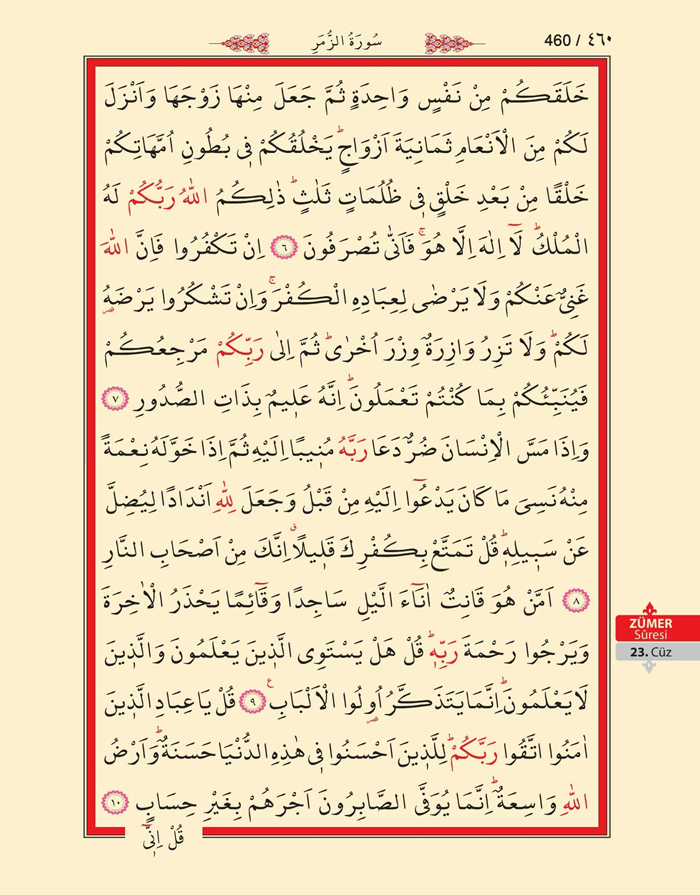 460 / ٤٦٠
سُورَةُ الزُّمَرِ
خَلَقَكُمْ مِنْ نَفْسٍ وَاحِدَةٍ ثُمَّ جَعَلَ مِنْهَا زَوْجَهَا وَاَنْزَلَ
لَكُمْ مِنَ الْاَنْعَامِ ثَمَانِيَةَ اَزْوَاجٍۜ يَخْلُقُكُمْ ف۪ي بُطُونِ اُمَّهَاتِكُمْ
خَلْقًا مِنْ بَعْدِ خَلْقٍ ف۪ي ظُلُمَاتٍ ثَلٰثٍۜ ذٰلِكُمُ اللّٰهُ رَبُّكُمْ لَهُ
الْمُلْكُۜ لَٓا اِلٰهَ اِلَّا هُوَۚ فَاَنّٰى تُصْرَفُونَ ﴿٦﴾ اِنْ تَكْفُرُوا فَاِنَّ اللّٰهَ
غَنِيٌّ عَنْكُمْ وَلَا يَرْضٰى لِعِبَادِهِ الْكُفْرَۚ وَاِنْ تَشْكُرُوا يَرْضَهُ
لَكُمْۜ وَلَا تَزِرُ وَازِرَةٌ وِزْرَ اُخْرٰىۜ ثُمَّ اِلٰى رَبِّكُمْ مَرْجِعُكُمْ
فَيُنَبِّئُكُمْ بِمَا كُنْتُمْ تَعْمَلُونَۜ اِنَّهُ عَل۪يمٌ بِذَاتِ الصُّدُورِ ﴿٧﴾
وَاِذَا مَسَّ الْاِنْسَانَ ضُرٌّ دَعَا رَبَّهُ مُن۪يبًا اِلَيْهِ ثُمَّ اِذَا خَوَّلَهُ نِعْمَةً
مِنْهُ نَسِيَ مَا كَانَ يَدْعُٓوا اِلَيْهِ مِنْ قَبْلُ وَجَعَلَ لِلّٰهِ اَنْدَادًا لِيُضِلَّ
عَنْ سَب۪يلِه۪ۜ قُلْ تَمَتَّعْ بِكُفْرِكَ قَل۪يلًاۗ اِنَّكَ مِنْ اَصْحَابِ النَّارِ
﴿٨﴾ اَمَّنْ هُوَ قَانِتٌ اٰنَٓاءَ الَّيْلِ سَاجِدًا وَقَٓائِمًا يَحْذَرُ الْاٰخِرَةَ
وَيَرْجُوا رَحْمَةَ رَبِّه۪ۜ قُلْ هَلْ يَسْتَوِي الَّذ۪ينَ يَعْلَمُونَ وَالَّذ۪ينَ
لَا يَعْلَمُونَۜ اِنَّمَا يَتَذَكَّرُ اُو۬لُوا الْاَلْبَابِ ﴿٩﴾ قُلْ يَا عِبَادِ الَّذ۪ينَ
اٰمَنُوا اتَّقُوا رَبَّكُمْۜ لِلَّذ۪ينَ اَحْسَنُوا ف۪ي هٰذِهِ الدُّنْيَا حَسَنَةٌۜ وَاَرْضُ
اللّٰهِ وَاسِعَةٌۜ اِنَّمَا يُوَفَّى الصَّابِرُونَ اَجْرَهُمْ بِغَيْرِ حِسَابٍ ﴿١٠﴾
قُلْ اِنّ۪ٓي
ZÜMER
Sûresi
23. Cüz